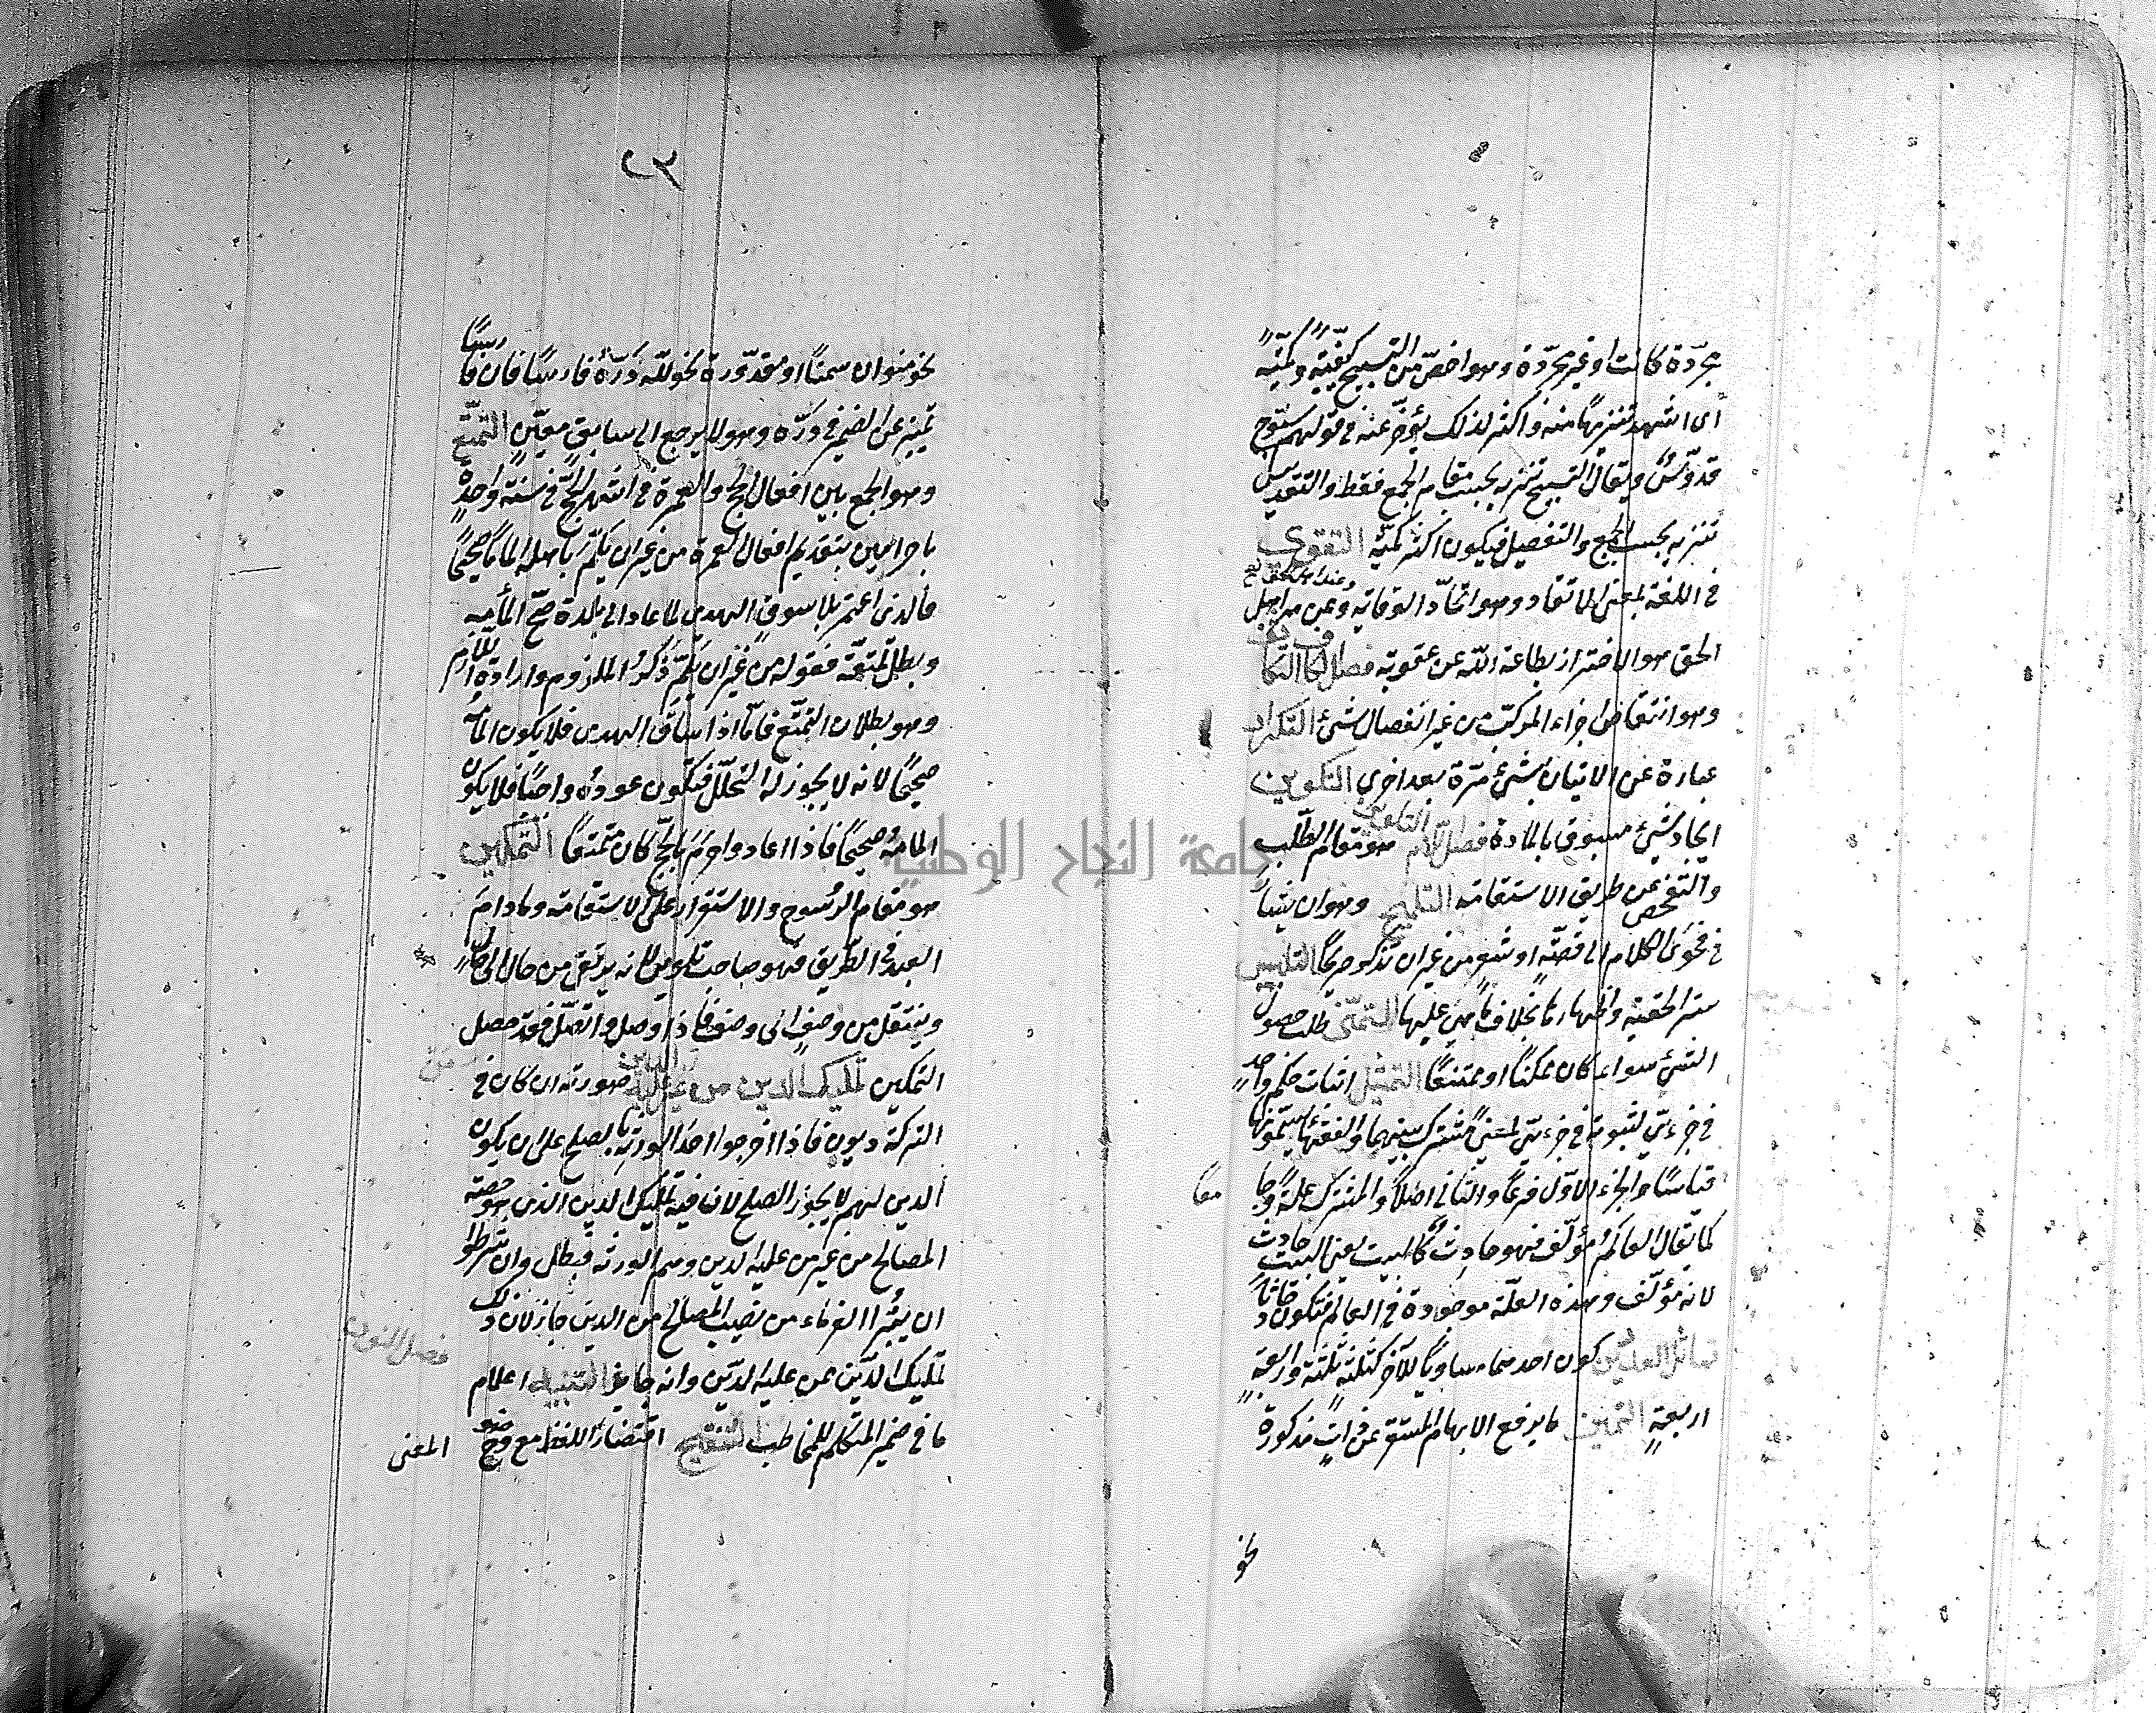 مجردة كانت او غير مجردة وهو اخص من التسبيح كيفية وكمية
اى اشد تنزيها منه واكثر لذلك يؤخر عنه فى قولهم سبوح
قدوس ويقال التسبيح تنزيه بحسب مقام الجمع فقط والتقديس
تنزيه بحسب الجمع والتفصيل فيكون اكثر كمية التقوى
فى اللغة بمعنى الاتقاء وهو اتخاذ الوقاية وعند اهل
الحق هو الاحتراز بطاعة الله عن عقوبته فصل الكاف التكاثف
وهو انتقاض اجزاء المركب من غير انفصال شئ التكرار
عبارة عن الاتيان بشئ مرة بعد اخرى التكوين
ايجاد شئ مسبوق بالمادة فصل اللام التلوين هو مقام الطلب
والتفحص عن طريق الاستقامة التلميح وهو ان يشار
فى فحوى الكلام الى قصة او شعر من غير ان تذكر صريحا التلبيس
ستر الحقيقة واظهارها بخلاف ما هى عليها التمنى طلب حصول
الشئ سواء كان ممكنا او ممتنعا التمثيل اثبات حكم واحد
فى جزئى لثبوته فى جزئى لمعنى مشترك بينهما والفقهاء يسمونها
قياسا والجزء الاول فرعا والثانى اصلا والمشترك علة وجامعا
كما يقال العالم مؤلف فهو حادث كالبيت يعنى البيت حادث
لانه مؤلف وهذه العلة موجودة فى العالم فتكون حادثا
تماثل العددين كون احدهما مساويا للآخر كثلثة ثلثة واربعة
اربعة التمييز ما يرفع الابهام المستقر عن ذات مذكورة
نحو
٢٣
نحو منوان سمنا او مقدرة نحو لله دره فارسا فان فارسا
تمييز عن الضمير فى دره وهو لا يرجع الى سابق معين التمتع
وهو الجمع بين افعال الحج والعمرة فى اشهر الحج فى سنة واحدة
باحرامين بتقديم افعال العمرة من غير ان يلم باهله الماما صحيحا
فالذى اعتمر بلا سوق الهدى لما عاد الى بلده صح المامه
وبطل تمتعه فقوله من غير ان يلم ذكر الملزوم وارادة اللازم
وهو بطلان التمتع فاما اذا ساق الهدى فلا يكون المامه
صحيحا لانه لا يجوز له التحلل فتكون عوده واجبا فلا يكون
المامه صحيحا فاذا عاد واحرم بالحج كان متمتعا التمكين
هو مقام الرسوخ والاستقرار على الاستقامة وما دام
العبد فى الطريق فهو صاحب تلوين لانه يرتقى من حال الى حال
وينتقل من وصف الى وصف فاذا وصل واتصل فقد حصل
التمكين تمليك الدين من غير من عليه الدين صورته ان كان فى
التركة ديون فاذا اخرجوا احد الورثة بالصلح على ان يكون
الدين لهم لا يجوز الصلح لان فيه تمليك الدين الذى هو حصة
المصالح من غير من عليه الدين وهم الورثة فبطل وان شرطوا
ان يبرأ الغرماء من نصيب المصالح من الدين جاز لان ذلك
تمليك الدين عمن عليه الدين وانه جائز فصل النون التنبيه اعلام
ما فى ضمير المتكلم للمخاطب التنقيح اختصار اللفظ مع وضوح
المعنى
جامعة النجاح الوطنية